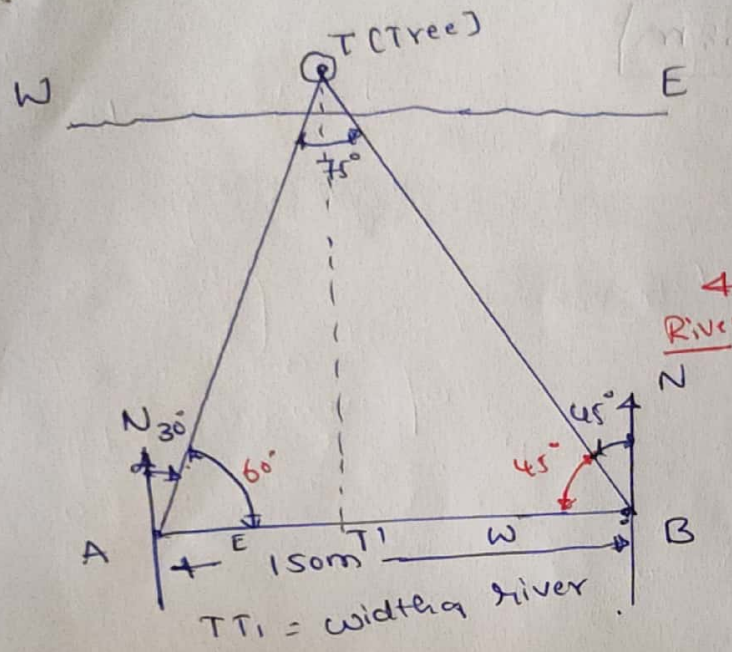 T (Tree)
W
E
75°
4
Rive
N
N 30°
45°
60°
45°
A
E
T1
W
B
150m
TT1 = width of river